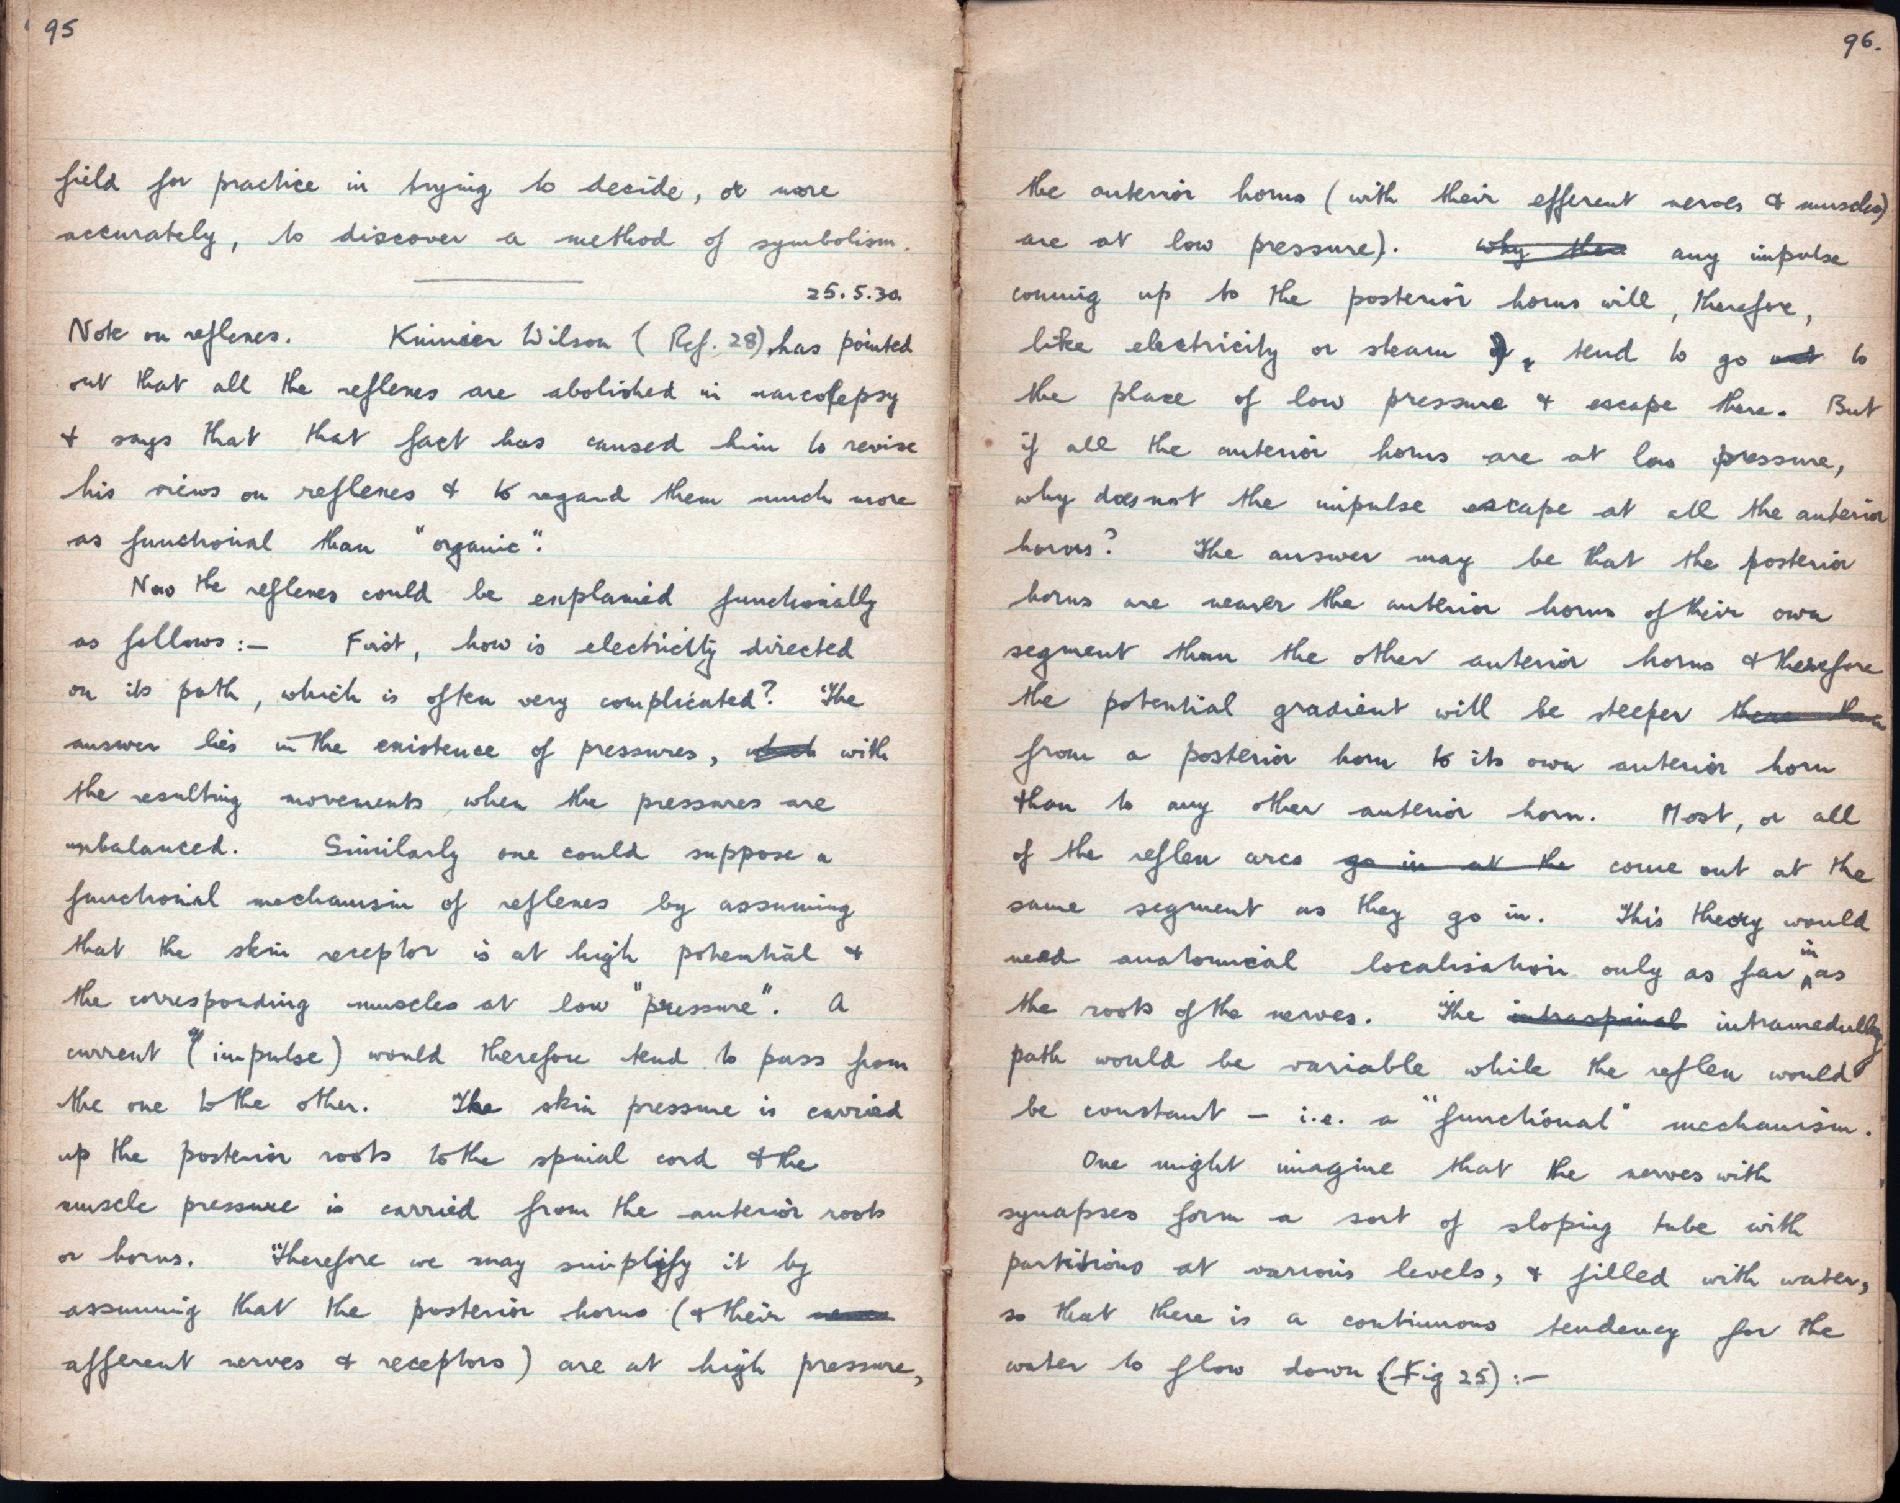 95
field for practice in trying to decide, or more
accurately, to discover a method of symbolism.
25.5.30.
Note on reflexes. Kinnier Wilson (Ref. 28) has pointed
out that all the reflexes are abolished in narcolepsy
& says that that fact has caused him to revise
his views on reflexes & to regard them much more
as functional than "organic".
Now the reflexes could be explained functionally
as follows:— First, how is electricity directed
on its path, which is often very complicated? The
answer lies in the existence of pressures, which with
the resulting movements when the pressures are
unbalanced. Similarly one could suppose a
functional mechanism of reflexes by assuming
that the skin receptor is at high potential &
the corresponding muscles at low "pressure". A
current (or impulse) would therefore tend to pass from
the one to the other. The skin pressure is carried
up the posterior roots to the spinal cord & the
muscle pressure is carried from the anterior roots
or horns. Therefore we may simplify it by
assuming that the posterior horns (& their
afferent nerves & receptors) are at high pressure,
96.
the anterior horns (with their efferent nerves & muscles)
are at low pressure). Why then any impulse
coming up to the posterior horns will, therefore,
like electricity or steam, tend to go out to
the place of low pressure & escape there. But
if all the anterior horns are at low pressure,
why does not the impulse escape at all the anterior
horns? The answer may be that the posterior
horns are nearer the anterior horns of their own
segment than the other anterior horns & therefore
the potential gradient will be steeper there than
from a posterior horn to its own anterior horn
than to any other anterior horn. Most, or all
of the reflex arcs go in at the come out at the
same segment as they go in. This theory would
need anatomical localisation only as far in as
the roots of the nerves. The intraspinal intramedullary
path would be variable while the reflex would
be constant – i.e. a "functional" mechanism.
One might imagine that the nerves with
synapses form a sort of sloping tube with
partitions at various levels, & filled with water,
so that there is a continuous tendency for the
water to flow down (Fig 25) :—